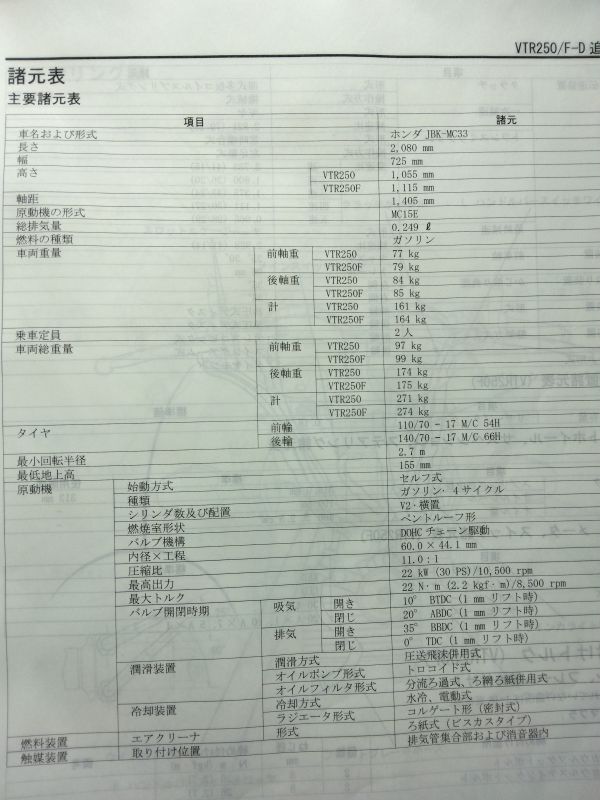 VTR250/F-D 追
諸元表
主要諸元表
項目 諸元
車名および形式 ホンダ JBK-MC33
長さ 2,080 mm
幅 725 mm
高さ VTR250 1,055 mm
VTR250F 1,115 mm
軸距 1,405 mm
原動機の形式 MC15E
総排気量 0.249 ℓ
燃料の種類 ガソリン
車両重量 前軸重 VTR250 77 kg
VTR250F 79 kg
後軸重 VTR250 84 kg
VTR250F 85 kg
計 VTR250 161 kg
VTR250F 164 kg
乗車定員 2人
車両総重量 前軸重 VTR250 97 kg
VTR250F 99 kg
後軸重 VTR250 174 kg
VTR250F 175 kg
計 VTR250 271 kg
VTR250F 274 kg
タイヤ 前輪 110/70 - 17 M/C 54H
後輪 140/70 - 17 M/C 66H
最小回転半径 2.7 m
最低地上高 155 mm
原動機 始動方式 セルフ式
種類 ガソリン・4サイクル
シリンダ数及び配置 V2・横置
燃焼室形状 ペントルーフ形
バルブ機構 DOHC チェーン駆動
内径×工程 60.0 × 44.1 mm
圧縮比 11.0 : 1
最高出力 22 kW (30 PS)/10,500 rpm
最大トルク 22 N・m (2.2 kgf・m)/8,500 rpm
バルブ開閉時期 吸気 開き 10° BTDC (1 mm リフト時)
閉じ 20° ABDC (1 mm リフト時)
排気 開き 35° BBDC (1 mm リフト時)
閉じ 0° TDC (1 mm リフト時)
潤滑装置 潤滑方式 圧送飛沫併用式
オイルポンプ形式 トロコイド式
オイルフィルタ形式 分流ろ過式、ろ網ろ紙併用式
冷却装置 冷却方式 水冷、電動式
ラジエータ形式 コルゲート形 (密封式)
燃料装置 エアクリーナ 形式 ろ紙式 (ビスカスタイプ)
触媒装置 取り付け位置 排気管集合部および消音器内